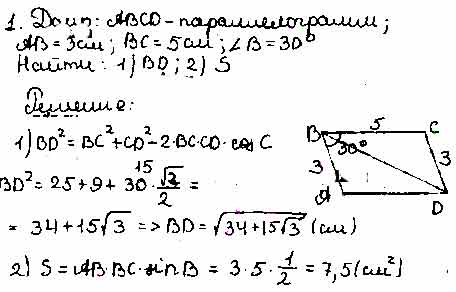 1. Дано: ABCD - параллелограмм;
AB = 3см; BC = 5см; ∠B = 30°
Найти: 1) BD; 2) S
Решение:
1) BD² = BC² + CD² - 2·BC·CD·cos C
BD² = 25 + 9 + 30·√3/2 =
15
= 34 + 15√3 => BD = √(34 + 15√3) (см)
2) S = AB·BC·sin B = 3·5·1/2 = 7,5 (см²)
B 5 C
30°
3 3
A D